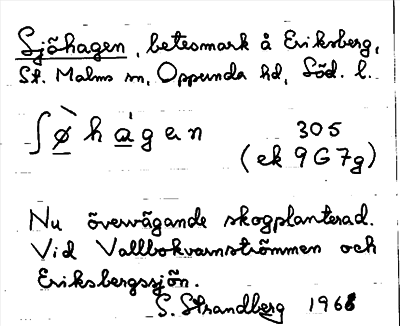 Sjöhagen, betesmark å Eriksberg,
St. Malms sn, Oppunda hd, Söd. l.
ʃø̱̀ h á̱ g ɐ n 305
(ek 9G7g)
Nu övervägande skogplanterad.
Vid Vallbokvarnströmmen och
Eriksbergssjön.
S. Strandberg 1968